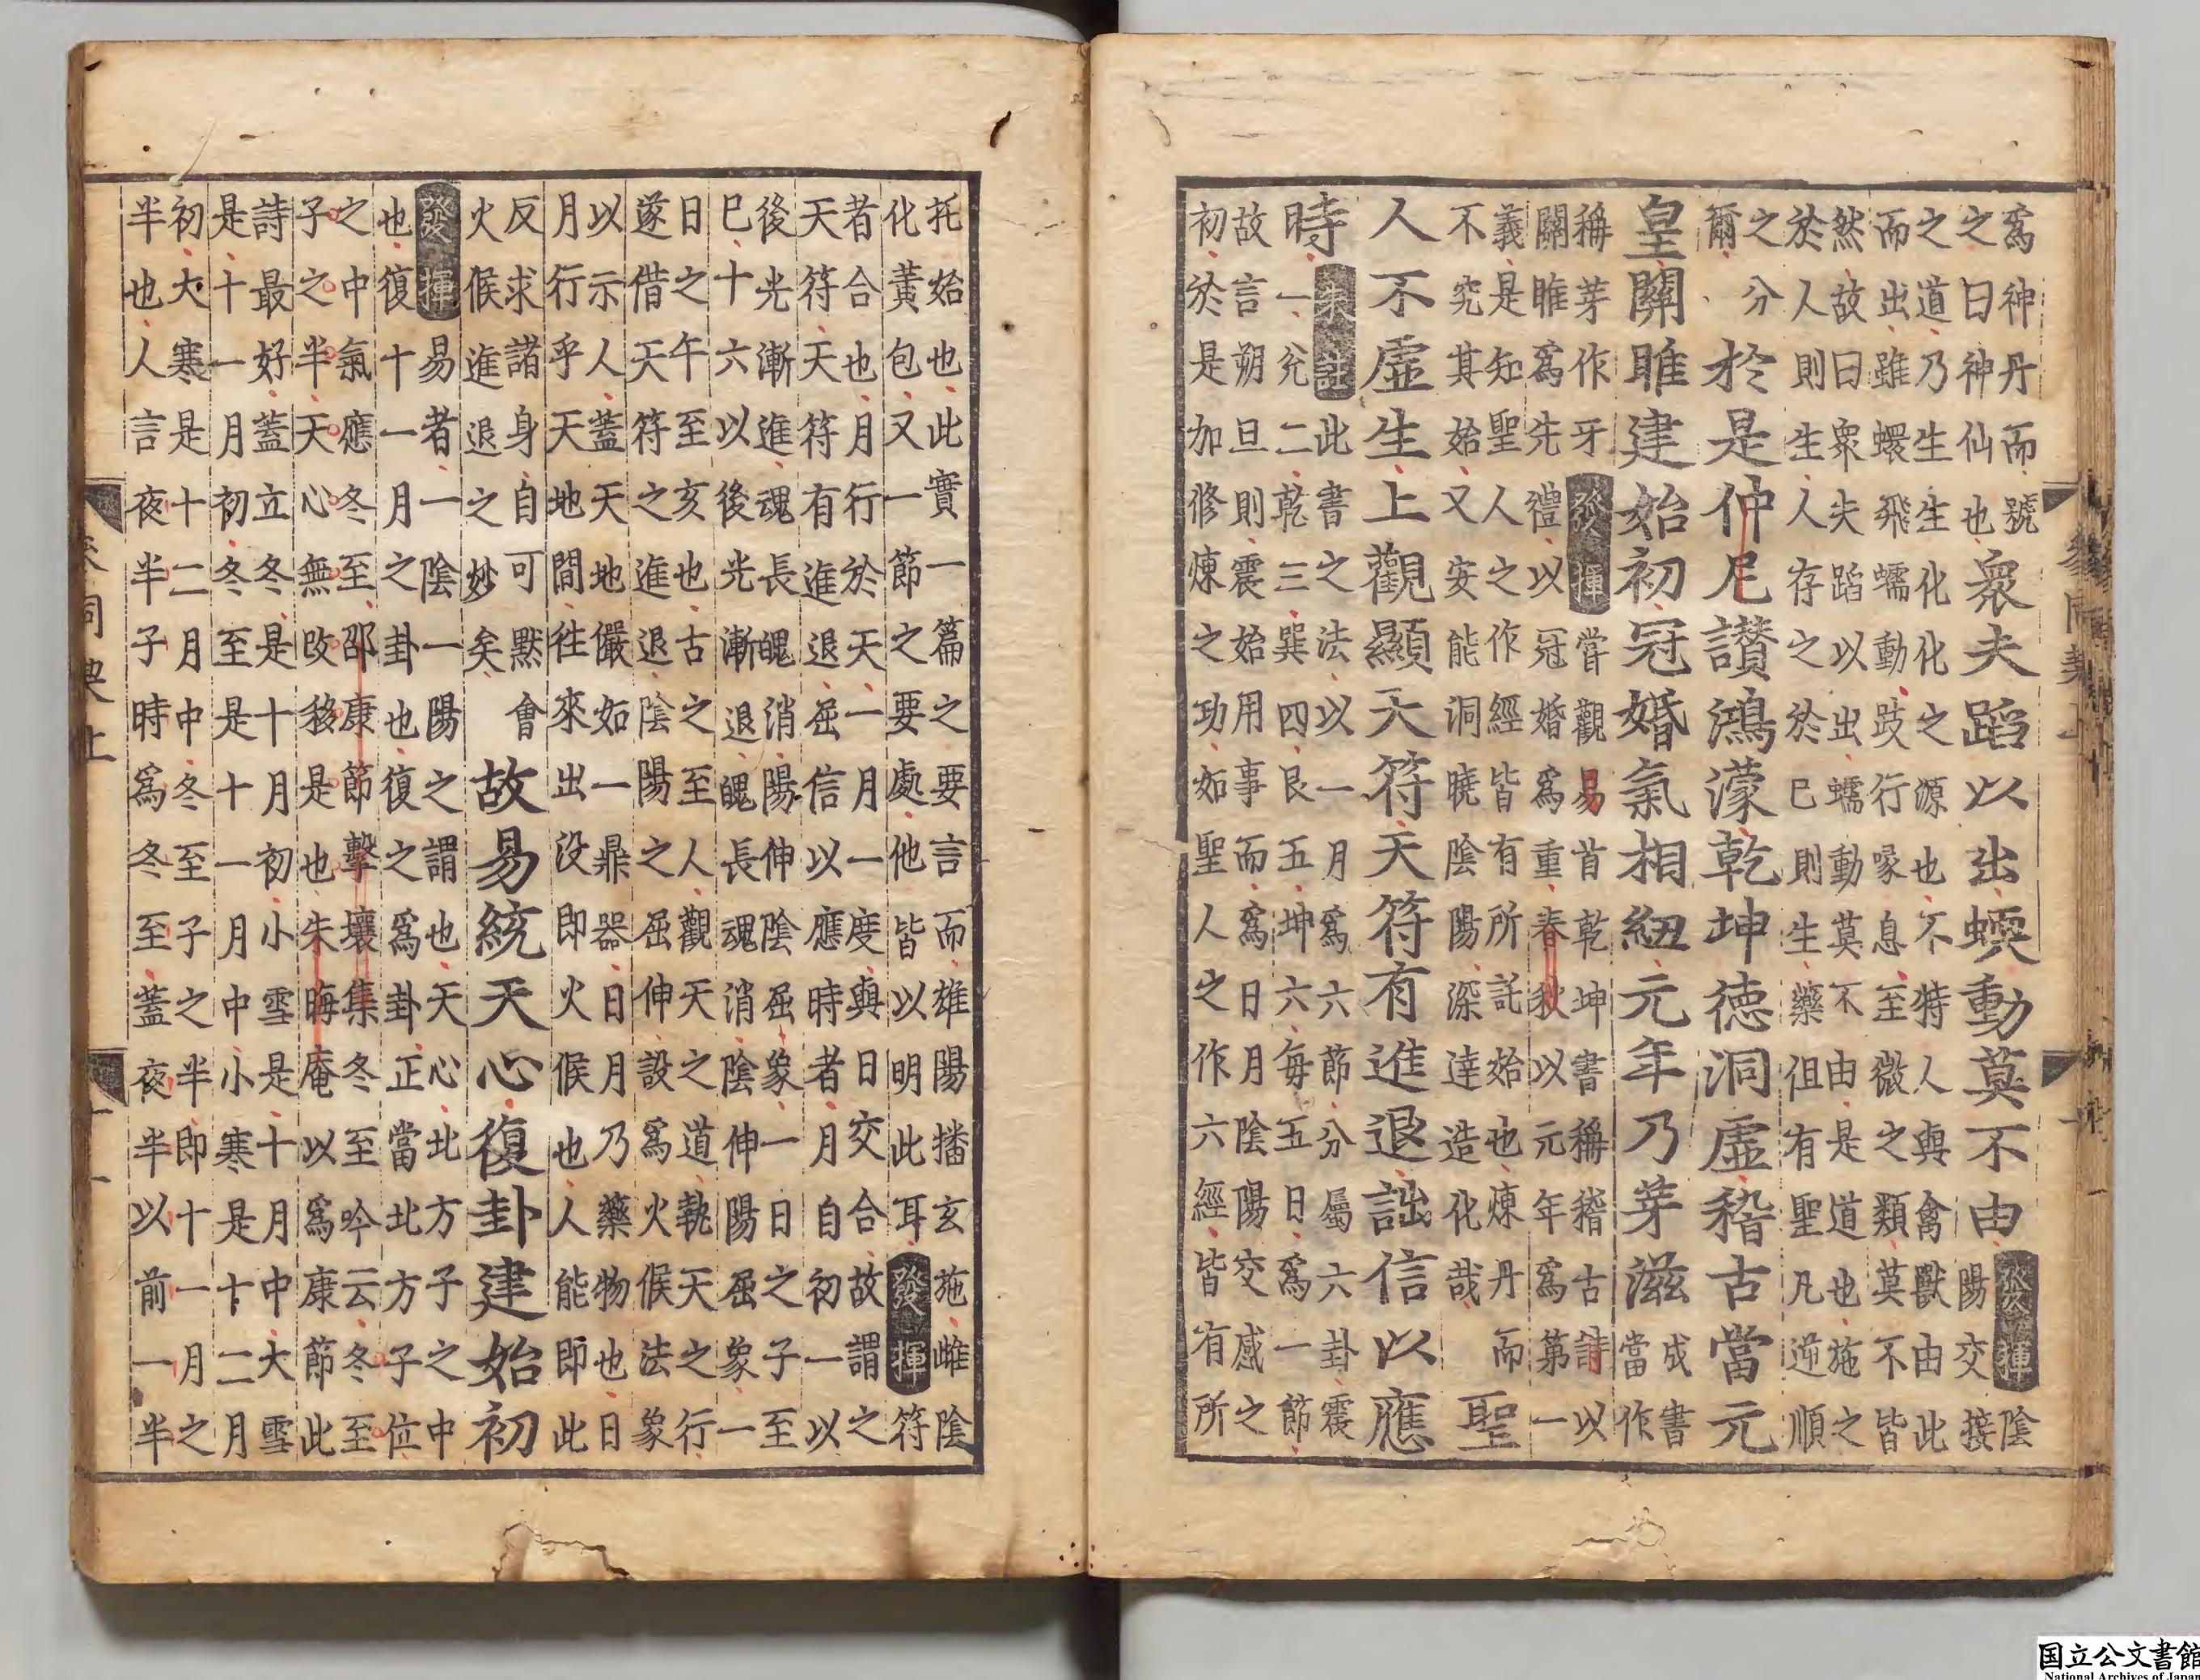 爲神丹而號
之曰神仙也
衆夫蹈以出蝡動莫不由
發揮陰
陽交接
之道乃生生化化之源也不特人與禽獸由此
而出雖蠉飛蠕動跂行喙息至微之類莫不皆
然故曰衆夫蹈以出蠕動莫不由是道也施之
於人則生人存之於已則生藥但有聖凡逆順
之分
爾
於是仲尼讃鴻濛乾坤德洞虛稽古當元
皇關雎建始初冠婚氣相紐元年乃芽滋
成書
當作
稱芽作牙發揮嘗觀易首乾坤書稱稽古詩以
關睢爲先禮以冠婚爲重春秋以元年爲第一
義是知聖人之作經皆有所託始也煉丹而
不究其始又安能洞曉陰陽深達造化哉
聖
人不虛生上觀顯天符天符有進退詘信以應
時
朱註此書之法以一月爲六節分屬六卦震
一兊二乾三巽四艮五坤六每五日爲一節
故言朔旦則震始用事而爲日月陰陽交感之
初於是加修煉之功如聖人之作六經皆有所
托始也此實一篇之要言而雄陽播玄施雌陰
化黃包又一節之要處他皆以明此耳發揮符
者合也月行於天一月一度與日交合故謂之
天符天符有進退屈信以應時者月自初一以
後光漸進魂長魄消陽伸陰屈象一日之子至
巳十六以後光漸退魄長魂消陰伸陽屈象一
日之午至亥也古之至人觀天之道執天之行
遂借天符之進退陰陽之屈伸設爲火候法象
以示人蓋天地儼如一鼎器日月乃藥物也日
月行乎天地間往來出没即火候也人能即此
反求諸身自可默會
火候進退之妙矣
故易統天心復卦建始初
發揮易者一陰一陽之謂也天心北方子之中
也復十一月之卦也復之爲卦正當北方子位
之中氣應冬至邵康節擊壤集冬至吟云冬至
子之半天心無改移是也朱晦庵以爲康節此
詩最好蓋立冬是十月初小雪是十月中大雪
是十一月初冬至是十一月中小寒是十二月
初大寒是十二月中冬至子之半即十一月之
半也人言夜半子時爲冬至蓋夜半以前一半
國立公文書館
National Archives of Japan